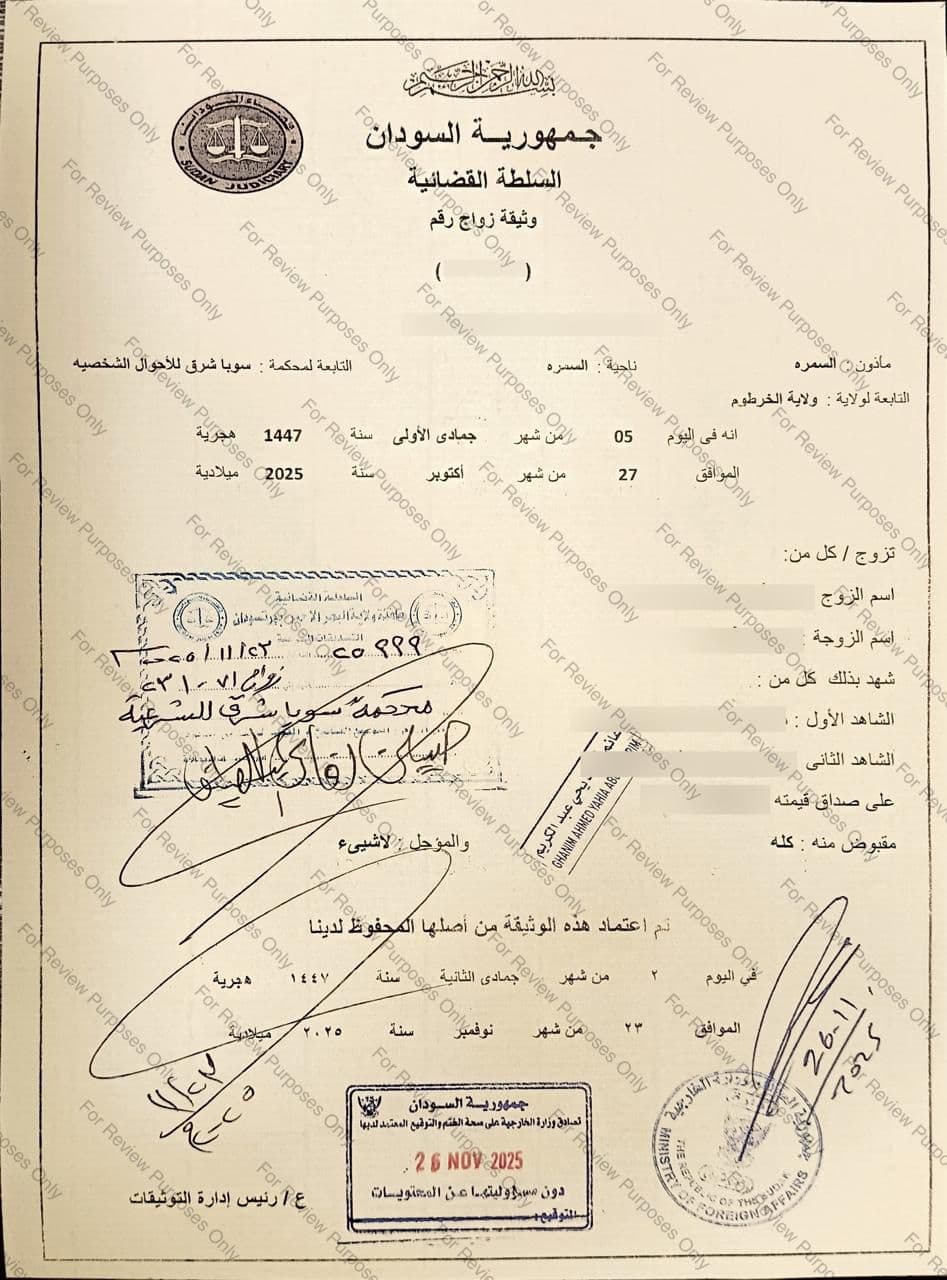 بسم الله الرحمن الرحيم
جمهورية السودان
السلطة القضائية
وثيقة زواج رقم
( )
SUDAN JUDICIARY
مأذون : السمره ناحية : السمره التابعة لمحكمة : سوبا شرق للأحوال الشخصيه
التابعة لولاية : ولاية الخرطوم
انه فى اليوم 05 من شهر جمادى الأولى سنة 1447 هجرية
الموافق 27 من شهر أكتوبر سنة 2025 ميلادية
تزوج / كل من:
اسم الزوج
إسم الزوجة :
شهد بذلك كل من :
الشاهد الأول :
الشاهد الثانى
على صداق قيمته
مقبوض منه : كله والمؤجل : لاشيىء
السلطة القضائية
التصديقات
٢٥٩٩٩ ٢٠٢٥/١١/٢٣
زواج ٢٣١٠٧١
محكمة سوبا شرق الشرعية
يحي عبد الكريم
GHANIM AHMED YAHIA
تم اعتماد هذه الوثيقة من أصلها المحفوظ لدينا
في اليوم ٢ من شهر جمادى الثانية سنة ١٤٤٧ هجرية
الموافق ٢٣ من شهر نوفمبر سنة ٢٠٢٥ ميلادية
26-11-2025
جمهورية السودان
تصادق وزارة الخارجية على صحة الختم والتوقيع المعتمد لديها
26 NOV 2025
دون مسؤوليتها عن المحتويات
التوقيع:
MINISTRY OF FOREIGN AFFAIRS
THE REPUBLIC OF THE SUDAN
ع / رئيس إدارة التوثيقات
For Review Purposes Only